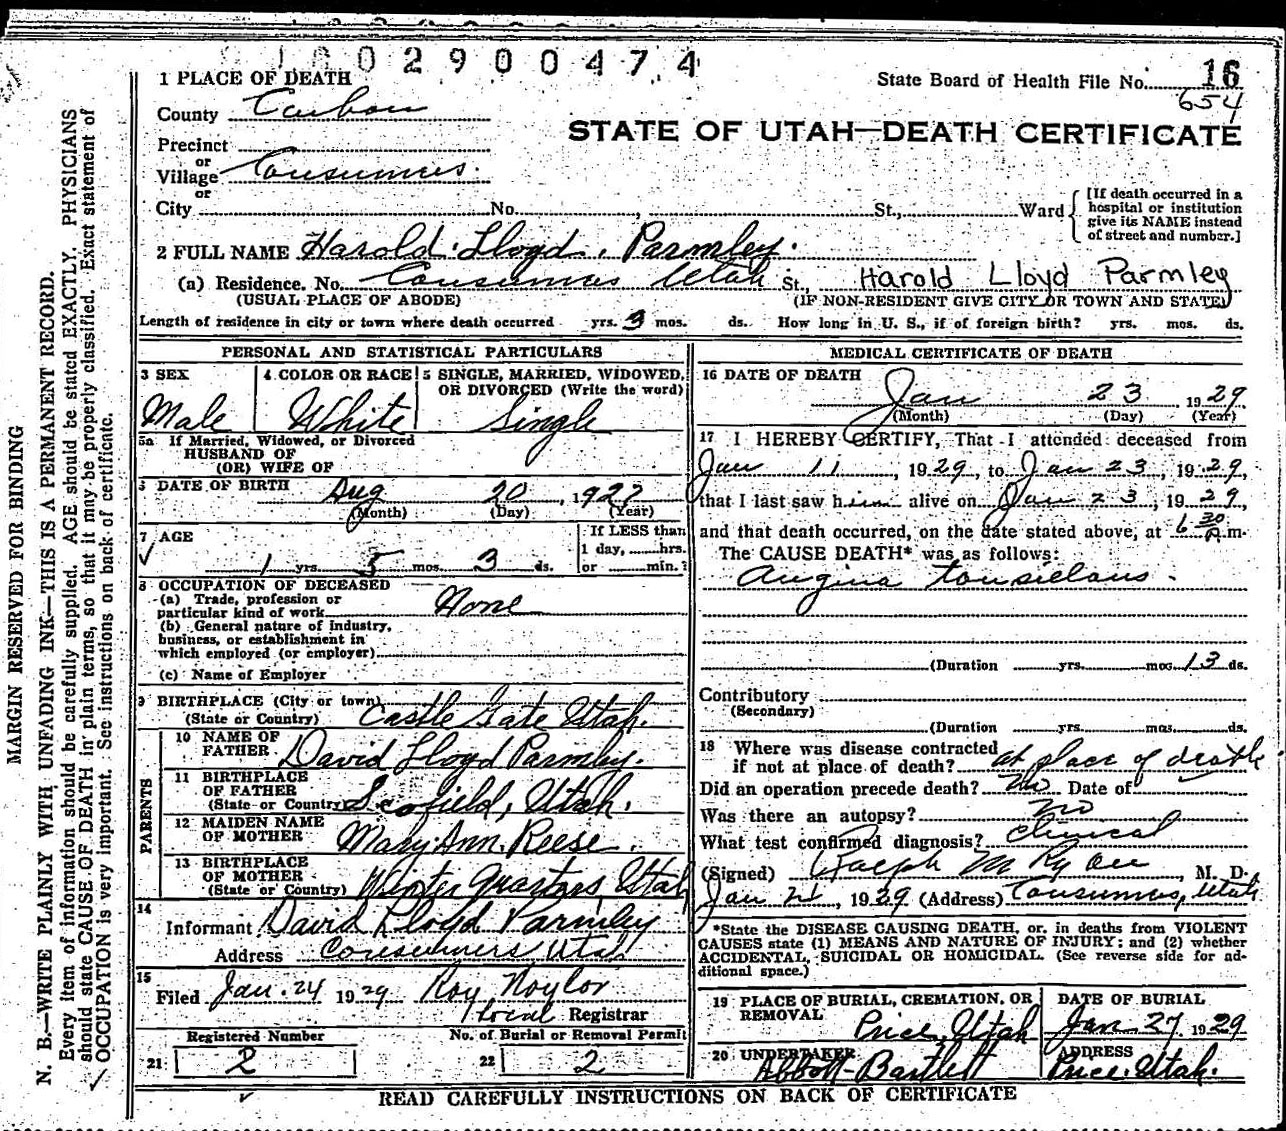 1802900474
1 PLACE OF DEATH
State Board of Health File No. 16
654
County Carbon
STATE OF UTAH—DEATH CERTIFICATE
Precinct
or
Village Consumers.
or
City No. St., Ward [If death occurred in a hospital or institution give its NAME instead of street and number.]
2 FULL NAME Harold Lloyd Parmley.
(a) Residence. No. Consumers Utah St., Harold Lloyd Parmley
(USUAL PLACE OF ABODE) (IF NON-RESIDENT GIVE CITY OR TOWN AND STATE)
Length of residence in city or town where death occurred yrs. 3 mos. ds. How long in U. S., if of foreign birth? yrs. mos. ds.
PERSONAL AND STATISTICAL PARTICULARS
3 SEX 4 COLOR OR RACE 5 SINGLE, MARRIED, WIDOWED, OR DIVORCED (Write the word)
Male White Single
5a If Married, Widowed, or Divorced
HUSBAND OF
(OR) WIFE OF
6 DATE OF BIRTH Aug 20, 1927
(Month) (Day) (Year)
7 AGE If LESS than
1 yrs. 5 mos. 3 ds. 1 day, hrs.
or min.?
8 OCCUPATION OF DECEASED
(a) Trade, profession or
particular kind of work None
(b) General nature of industry,
business, or establishment in
which employed (or employer)
(c) Name of Employer
9 BIRTHPLACE (City or town)
(State or Country) Castle Gate Utah.
PARENTS
10 NAME OF
FATHER David Lloyd Parmley.
11 BIRTHPLACE
OF FATHER
(State or Country) Scofield, Utah.
12 MAIDEN NAME
OF MOTHER Mary Ann Reese.
13 BIRTHPLACE
OF MOTHER
(State or Country) Winter Quarters, Utah
14
Informant David Lloyd Parmley
Address Consumers, Utah
15
Filed Jan. 24 1929 Roy Naylor
Local Registrar
Registered Number No. of Burial or Removal Permit
21 2 22 2
MEDICAL CERTIFICATE OF DEATH
16 DATE OF DEATH
Jan 23, 1929
(Month) (Day) (Year)
17 I HEREBY CERTIFY, That I attended deceased from
Jan 11, 1929, to Jan 23, 1929,
that I last saw him alive on Jan 23, 1929,
and that death occurred, on the date stated above, at 6 30 A.m.
The CAUSE DEATH* was as follows:
Angina
(Duration yrs. mos. 13 ds.
Contributory
(Secondary)
(Duration yrs. mos. ds.
18 Where was disease contracted
if not at place of death? at place of death
Did an operation precede death? no Date of
Was there an autopsy? no
What test confirmed diagnosis? clinical
(Signed) Ralph M, M. D.
Jan 24, 1929 (Address) Consumers, Utah
*State the DISEASE CAUSING DEATH, or, in deaths from VIOLENT
CAUSES state (1) MEANS AND NATURE OF INJURY; and (2) whether
ACCIDENTAL, SUICIDAL OR HOMICIDAL. (See reverse side for additional space.)
19 PLACE OF BURIAL, CREMATION, OR REMOVAL DATE OF BURIAL
Price, Utah Jan. 27 1929
20 UNDERTAKER ADDRESS
Abbott-Bartlett Price, Utah.
READ CAREFULLY INSTRUCTIONS ON BACK OF CERTIFICATE
MARGIN RESERVED FOR BINDING
N. B.—WRITE PLAINLY WITH UNFADING INK—THIS IS A PERMANENT RECORD.
Every item of information should be carefully supplied. AGE should be stated EXACTLY. PHYSICIANS
should state CAUSE OF DEATH in plain terms, so that it may be properly classified. Exact statement of
OCCUPATION is very important. See instructions on back of certificate.